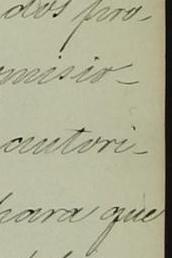 dos pro-
misio-
autori-
para que